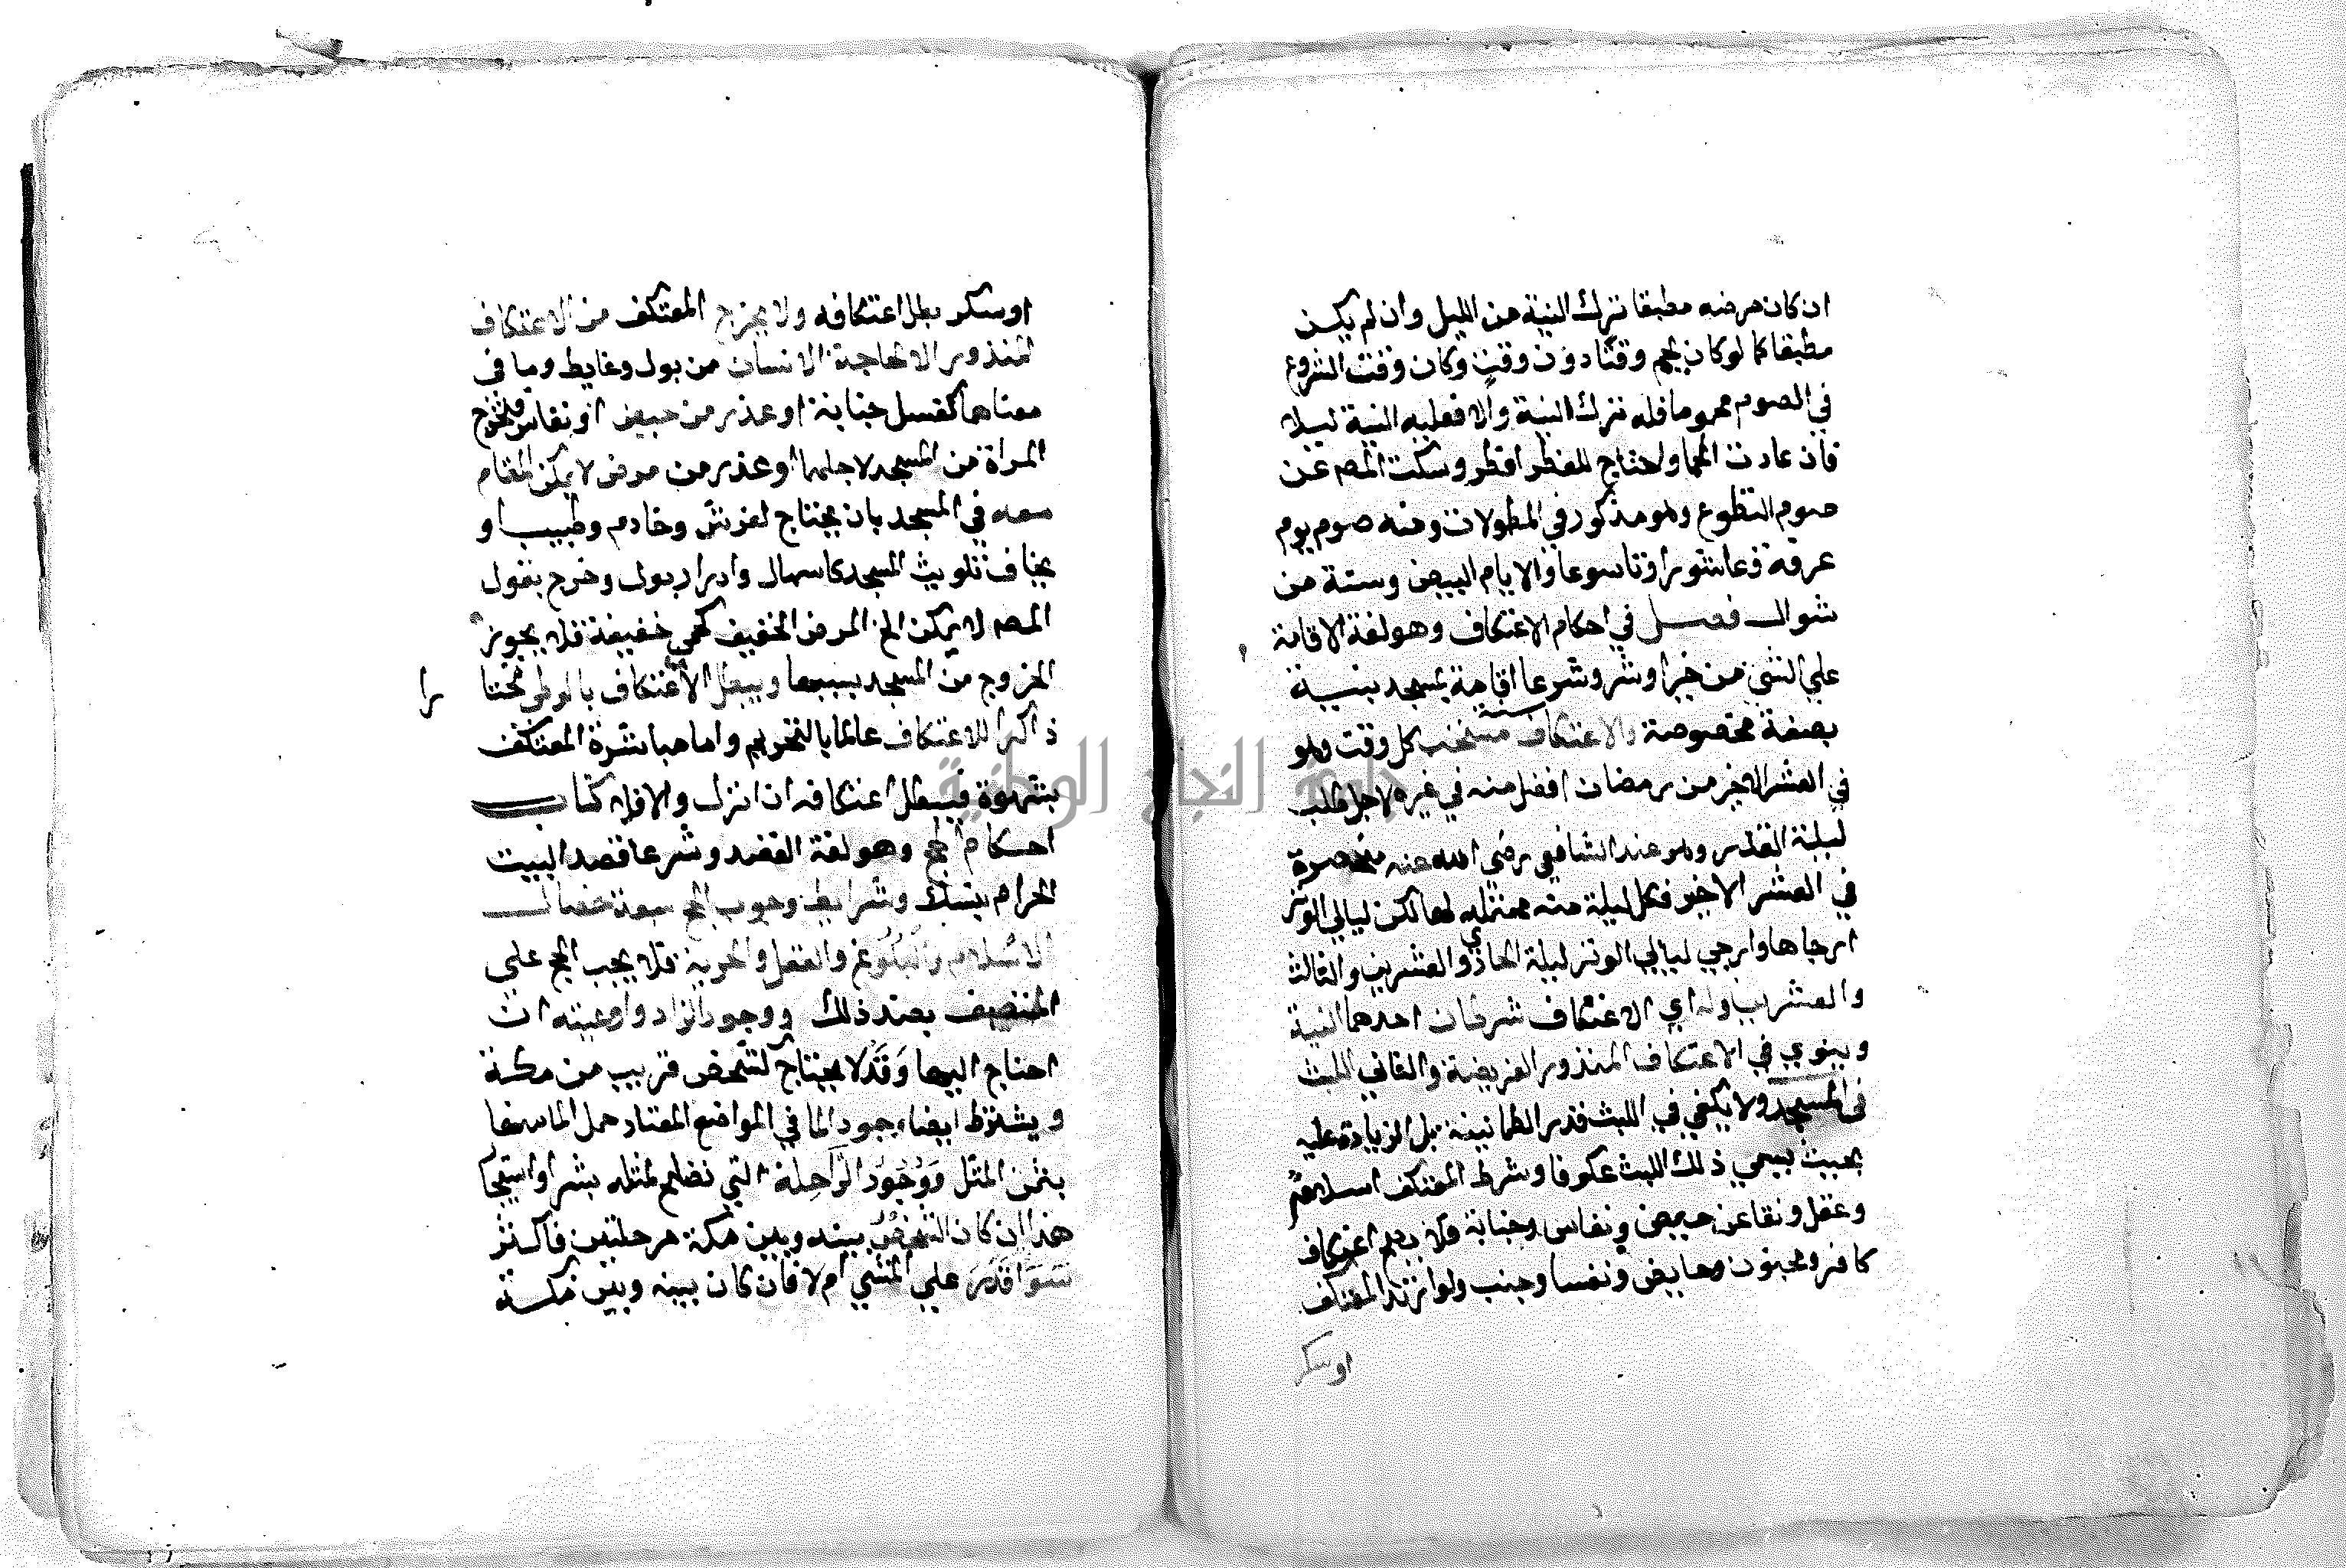 ان كان مرضه مطبقا ترك النية من الليل وان لم يكن
مطبقا كما لو كان يحم وقتا دون وقت وكان وقت الشروع
في الصوم محموما فله ترك النية والا فعليه النية ليلا
فان عادت الحما واحتاج للفطر افطر وسكت المص عن
صوم التطوع وهو مذكور في المطولات ومنه صوم يوم
عرفة وعاشورا وتاسوعا والايام البيض وستة من
شوال فصل في احكام الاعتكاف وهو لغة الاقامة
علي الشي من خير او شر وشرعا اقامة بمسجد بنية
بصفة مخصوصة والاعتكاف سنة مستحب كل وقت وهو
في العشر الاخير من رمضان افضل منه في غيره لاجل طلب
ليلة القدر وهو عند الشافعي رضي الله عنه منحصرة
في العشر الاخير فكل ليلة منه محتملة لها لكن ليالي الوتر
ارجاها وارجي ليالي الوتر ليلة الحادي والعشرين والثالث
والعشرين وله اي الاعتكاف شرطان احدهما النية
وينوي في الاعتكاف المنذور الفريضة والثاني اللبث
في المسجد ولا يكفي في اللبث قدر الطمانينة بل الزيادة عليه
بحيث يسمي ذلك اللبث عكوفا وشرط المعتكف اسلام
وعقل ونقا عن حيض ونفاس وجنابة فلا يصح اعتكاف
كافر ومجنون وحايض ونفسا وجنب ولو ارتد المعتكف
او سكر
او سكر بطل اعتكافه ولا يخرج المعتكف من الاعتكاف
المنذور الا لحاجة الانسان من بول وغايط وما في
معناهما كغسل جنابة او عذر من حيض او نفاس فتخرج
المراة من المسجد لاجلهما او عذر من مرض لا يمكن المقام
معه في المسجد بان يحتاج لفرش وخادم وطبيب او
يخاف تلويث المسجد كاسهال وادرار بول وخرج بقول
المص لا يمكن الخ المرض الخفيف كحمي خفيفة فلا يجوز
الخروج من المسجد بسببها ويبطل الاعتكاف بالوطي مختا
را
ذاكرا للاعتكاف عالما بالتحريم واما مباشرة المعتكف
بشهوة فيبطل اعتكافه ان انزل والا فلا كتاب
احكام الحج وهو لغة القصد وشرعا قصد البيت
الحرام بنسك وشرايط وجوب الحج سبعة خصال
الاسلام والبلوغ والعقل والحرية فلا يجب الحج علي
المتصف بضد ذلك ووجود الزاد واوعيته ان
احتاج اليها وقد لا يحتاج لشخص قريب من مكة
ويشترط ايضا وجود الما في المواضع المعتاد حمل الما منها
بثمن المثل ووجود الراحلة التي تصلح لمثله بشرا او استيجا
هذا ان كان الشخص بينه وبين مكة مرحلتين فاكثر
سوا قدر علي المشي ام لا فان كان بينه وبين مكة
جامعة النجاح الوطنية